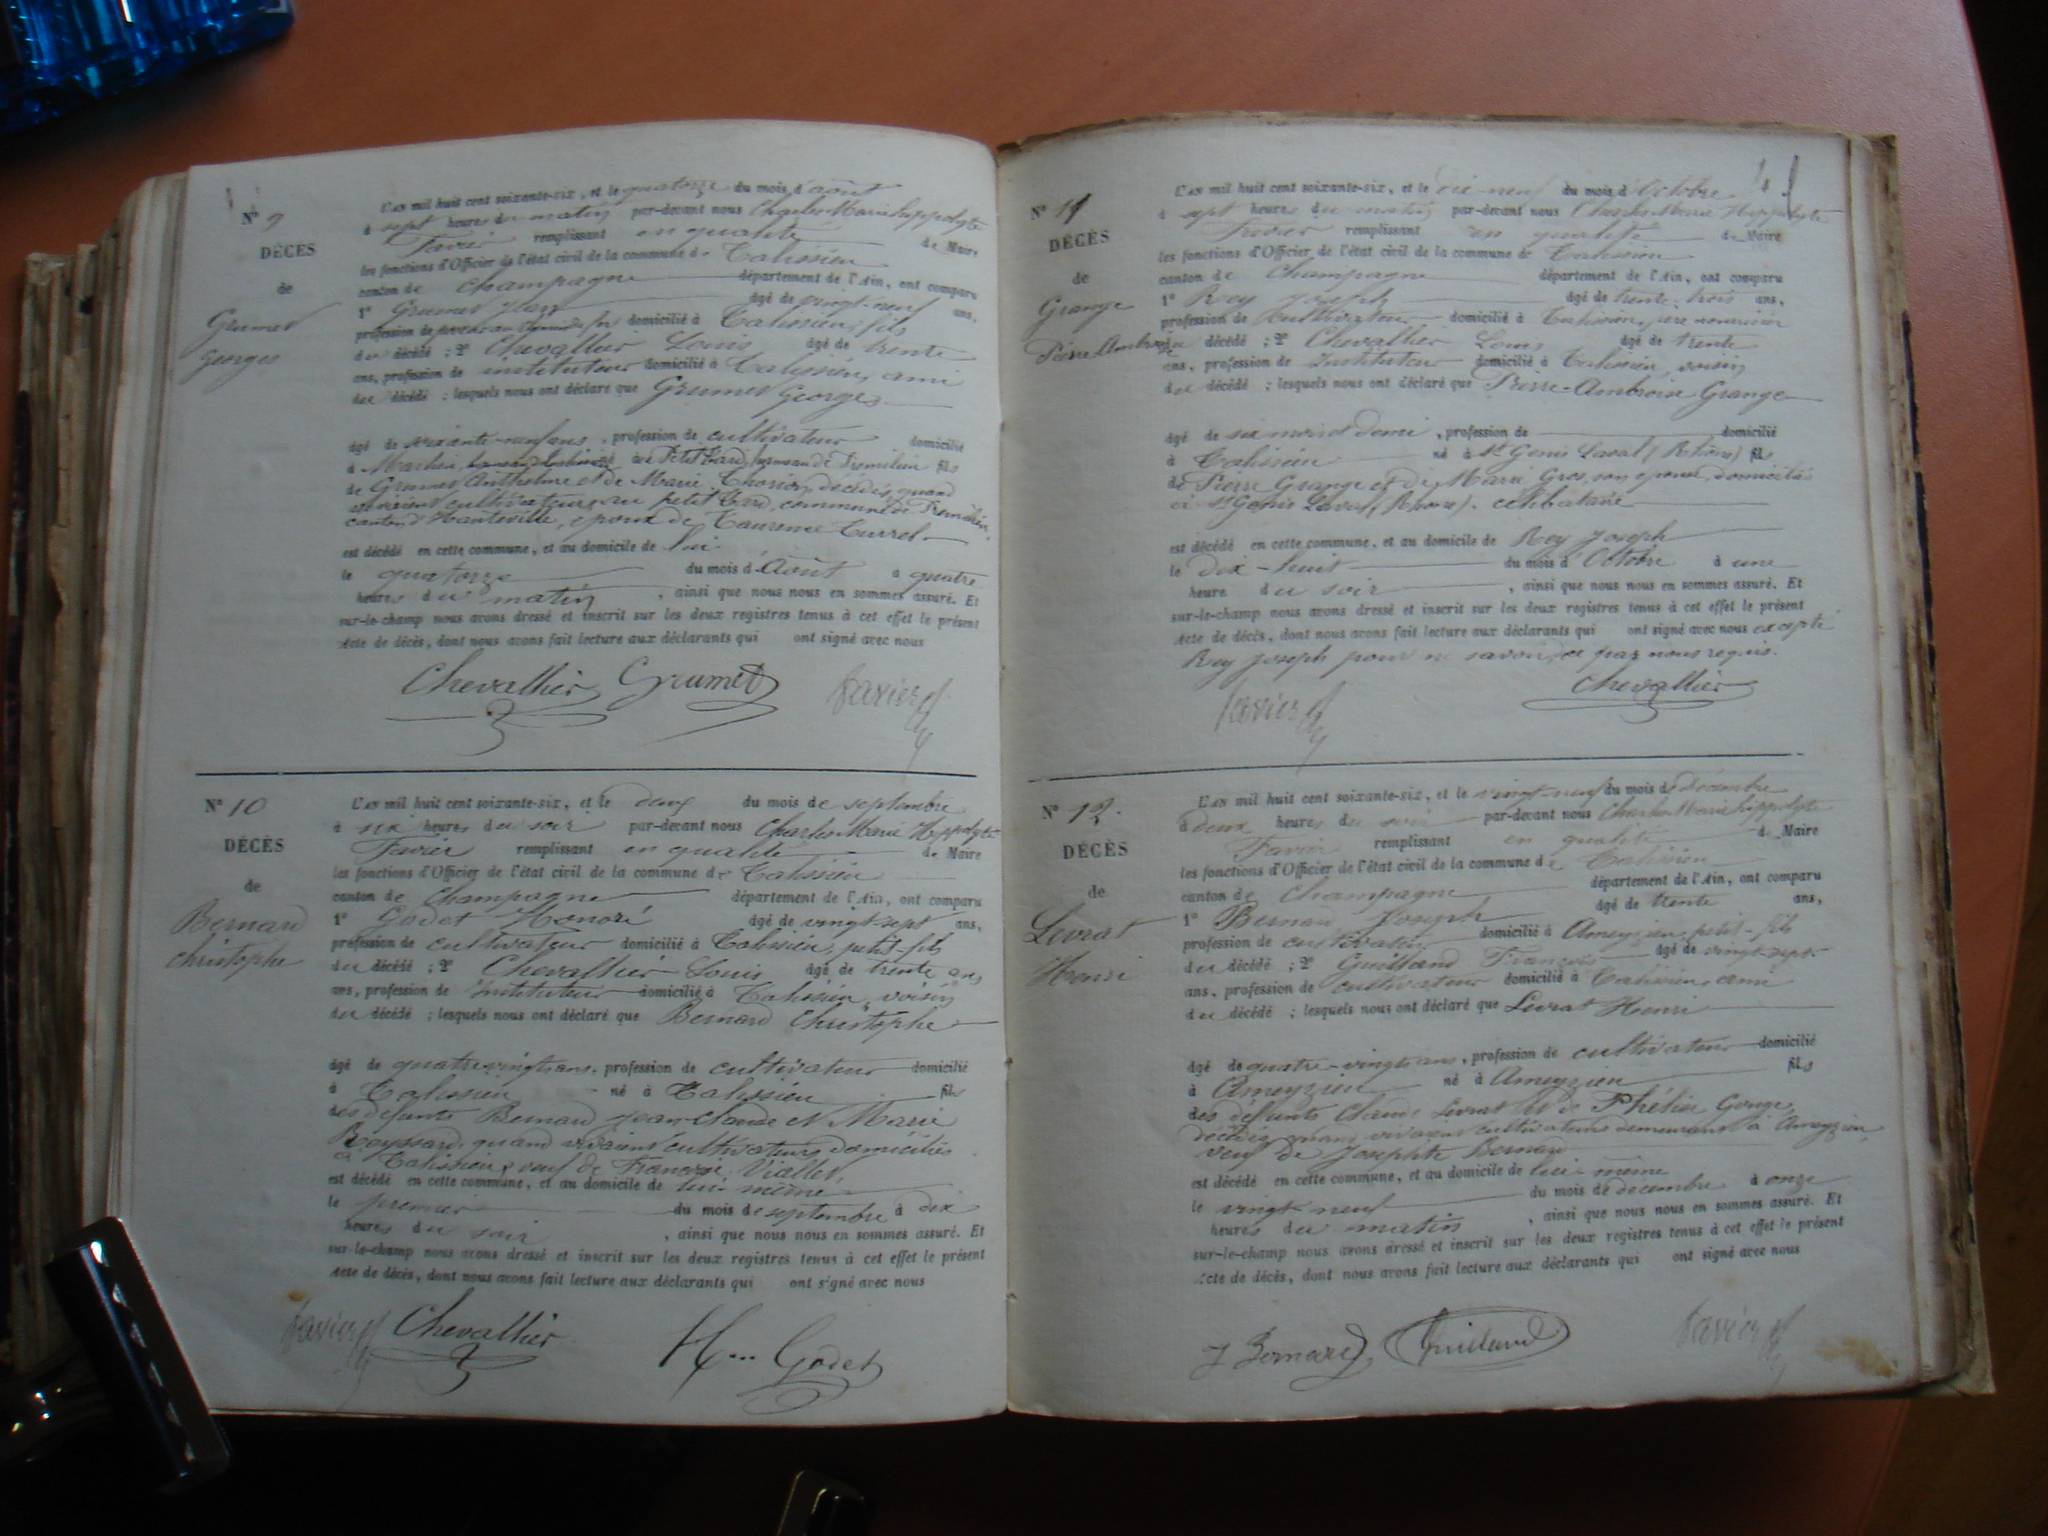 N° 9
DÉCÈS
de
Grumet
Georges
L'AN mil huit cent soixante-six, et le quatorze du mois d'août
à sept heures du matin par-devant nous Charles Marie hippolyte
Favier remplissant en qualité de Maire
les fonctions d'Officier de l'état civil de la commune de Talissieu
canton de Champagne département de l'Ain, ont comparu
1° Grumet âgé de vingt-neuf ans,
profession de domicilié à Talissieu, fils
du décédé ; 2° Chevallier Louis âgé de trente
ans, profession de instituteur domicilié à Talissieu, ami
du décédé ; lesquels nous ont déclaré que Grumet Georges
âgé de soixante-neuf ans, profession de cultivateur domicilié
à né au Petit hameau de fils
de Grumet Anthelme et de Marie décédés, quand
vivaient cultivateurs au petit commune de
canton d'Hauteville, époux de Laurence
est décédé en cette commune, et au domicile de lui
le quatorze du mois d'Août à quatre
heures du matin, ainsi que nous nous en sommes assuré. Et
sur-le-champ nous avons dressé et inscrit sur les deux registres tenus à cet effet le présent
acte de décès, dont nous avons fait lecture aux déclarants qui ont signé avec nous
Chevallier Grumet Favier
N° 10
DÉCÈS
de
Bernard
Christophe
L'AN mil huit cent soixante-six, et le deux du mois de septembre
à six heures du soir par-devant nous Charles Marie Hippolyte
Favier remplissant en qualité de Maire
les fonctions d'Officier de l'état civil de la commune de Talissieu
canton de Champagne département de l'Ain, ont comparu
1° Godet Honoré âgé de vingt-sept ans,
profession de cultivateur domicilié à Talissieu, petit-fils
du décédé ; 2° Chevallier Louis âgé de trente ans
ans, profession de Instituteur domicilié à Talissieu, voisin
du décédé ; lesquels nous ont déclaré que Bernard Christophe
âgé de quatre-vingts ans, profession de cultivateur domicilié
à Talissieu né à Talissieu fils
des défunts Bernard Jean-Claude et Marie
quand vivaient cultivateurs domiciliés
à Talissieu, veuf de Viallet,
est décédé en cette commune, et au domicile de lui-même
le premier du mois de septembre à dix
heures du soir, ainsi que nous nous en sommes assuré. Et
sur-le-champ nous avons dressé et inscrit sur les deux registres tenus à cet effet le présent
acte de décès, dont nous avons fait lecture aux déclarants qui ont signé avec nous
Favier Chevallier H... Godet
N° 11
DÉCÈS
de
Grange
Pierre Ambroise
L'AN mil huit cent soixante-six, et le dix-neuf du mois d'Octobre
à sept heures du matin par-devant nous Charles Marie Hippolyte
Favier remplissant en qualité de Maire
les fonctions d'Officier de l'état civil de la commune de Talissieu
canton de Champagne département de l'Ain, ont comparu
1° Rey Joseph âgé de trente-trois ans,
profession de Cultivateur domicilié à Talissieu, père nourricier
du décédé ; 2° Chevallier Louis âgé de trente
ans, profession de Instituteur domicilié à Talissieu, voisin
du décédé ; lesquels nous ont déclaré que Pierre-Ambroise Grange
âgé de six mois et demi, profession de domicilié
à Talissieu né à St Genis Laval (Rhône) fils
de Pierre Grange et de Marie Gros, son épouse, domiciliés
à St Genis Laval (Rhône). célibataire
est décédé en cette commune, et au domicile de Rey Joseph
le dix-huit du mois d'Octobre à une
heure du soir, ainsi que nous nous en sommes assuré. Et
sur-le-champ nous avons dressé et inscrit sur les deux registres tenus à cet effet le présent
acte de décès, dont nous avons fait lecture aux déclarants qui ont signé avec nous excepté
Rey Joseph pour ne savoir, de par nous requis.
Favier Chevallier
N° 12.
DÉCÈS
de
Levrat
Henri
L'AN mil huit cent soixante-six, et le vingt-neuf du mois de décembre
à deux heures du soir par-devant nous Charles Marie hippolyte
Favier remplissant en qualité de Maire
les fonctions d'Officier de l'état civil de la commune de Talissieu
canton de Champagne département de l'Ain, ont comparu
1° Bernard Joseph âgé de trente ans,
profession de cultivateur domicilié à Ameyzieu, petit-fils
du décédé ; 2° Guilland François âgé de vingt-sept
ans, profession de cultivateur domicilié à Talissieu, ami
du décédé ; lesquels nous ont déclaré que Levrat Henri
âgé de quatre-vingts ans, profession de cultivateur domicilié
à Ameyzieu né à Ameyzieu fils
des défunts Claude Levrat et de
décédés, quand vivaient cultivateurs demeurant à Ameyzieu,
veuf de Josephte Bernard
est décédé en cette commune, et au domicile de lui-même
le vingt-neuf du mois de décembre à onze
heures du matin, ainsi que nous nous en sommes assuré. Et
sur-le-champ nous avons dressé et inscrit sur les deux registres tenus à cet effet le présent
acte de décès, dont nous avons fait lecture aux déclarants qui ont signé avec nous
J Bernard Guilland Favier